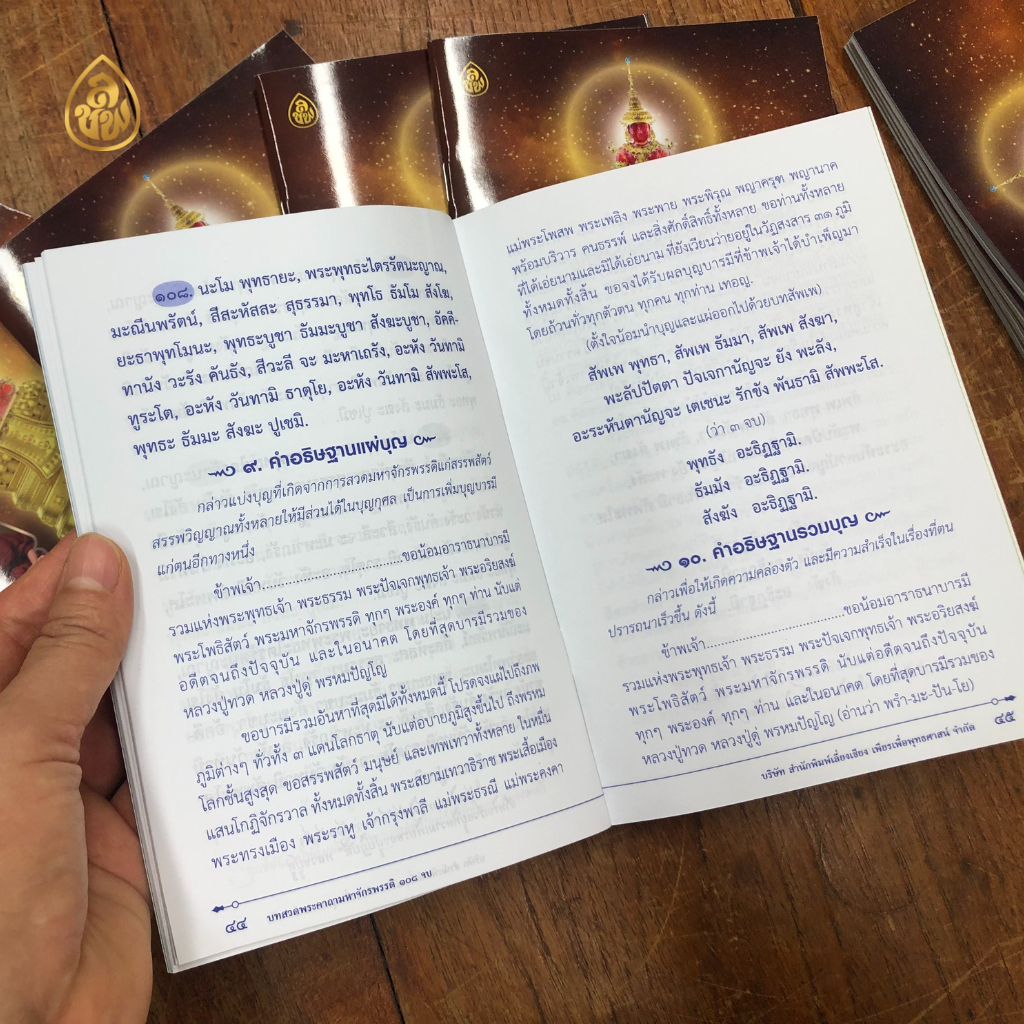 ชลิพ
๑๐๘. นะโม พุทธายะ, พระพุทธะไตรรัตนะญาณ,
มะณีนพรัตน์, สีสะหัสสะ สุธรรมา, พุทโธ ธัมโม สังโฆ,
ยะธาพุทโมนะ, พุทธะบูชา ธัมมะบูชา สังฆะบูชา, อัคคี-
ทานัง วะรัง คันธัง, สีวะลี จะ มะหาเถรัง, อะหัง วันทามิ
ทูระโต, อะหัง วันทามิ ธาตุโย, อะหัง วันทามิ สัพพะโส,
พุทธะ ธัมมะ สังฆะ ปูเชมิ.
๙. คำอธิษฐานแผ่บุญ
กล่าวแบ่งบุญที่เกิดจากการสวดมหาจักรพรรดิแก่สรรพสัตว์
สรรพวิญญาณทั้งหลายให้มีส่วนได้ในบุญกุศล เป็นการเพิ่มบุญบารมี
แก่ตนอีกทางหนึ่ง
ข้าพเจ้า.......................................ขอน้อมอาราธนาบารมี
รวมแห่งพระพุทธเจ้า พระธรรม พระปัจเจกพุทธเจ้า พระอริยสงฆ์
พระโพธิสัตว์ พระมหาจักรพรรดิ ทุกๆ พระองค์ ทุกๆ ท่าน นับแต่
อดีตจนถึงปัจจุบัน และในอนาคต โดยที่สุดบารมีรวมของ
หลวงปู่ทวด หลวงปู่ดู่ พรหมปัญโญ
ขอบารมีรวมอันหาที่สุดมิได้ทั้งหมดนี้ โปรดจงแผ่ไปถึงภพ
ภูมิต่างๆ ทั่วทั้ง ๓ แดนโลกธาตุ นับแต่อบายภูมิสูงขึ้นไป ถึงพรหม
โลกชั้นสูงสุด ขอสรรพสัตว์ มนุษย์ และเทพเทวาทั้งหลาย ในหมื่น
แสนโกฏิจักรวาล ทั้งหมดทั้งสิ้น พระสยามเทวาธิราช พระเสื้อเมือง
พระทรงเมือง พระราหู เจ้ากรุงพาลี แม่พระธรณี แม่พระคงคา
๔๔ บทสวดพระคาถามหาจักรพรรดิ ๑๐๘ จบ
แม่พระโพสพ พระเพลิง พระพาย พระพิรุณ พญาครุฑ พญานาค
พร้อมบริวาร คนธรรพ์ และสิ่งศักดิ์สิทธิ์ทั้งหลาย ขอท่านทั้งหลาย
ที่ได้เอ่ยนามและมิได้เอ่ยนาม ที่ยังเวียนว่ายอยู่ในวัฏสงสาร ๓๑ ภูมิ
ทั้งหมดทั้งสิ้น ขอจงได้รับผลบุญบารมีที่ข้าพเจ้าได้บำเพ็ญมา
โดยถ้วนทั่วทุกตัวตน ทุกคน ทุกท่าน เทอญ.
(ตั้งใจน้อมนำบุญและแผ่ออกไปด้วยบทสัพเพ)
สัพเพ พุทธา, สัพเพ ธัมมา, สัพเพ สังฆา,
พะลัปปัตตา ปัจเจกานัญจะ ยัง พะลัง,
อะระหันตานัญจะ เตเชนะ รักขัง พันธามิ สัพพะโส.
(ว่า ๓ จบ)
พุทธัง อะธิฏฐามิ.
ธัมมัง อะธิฏฐามิ.
สังฆัง อะธิฏฐามิ.
๑๐. คำอธิษฐานรวมบุญ
กล่าวเพื่อให้เกิดความคล่องตัว และมีความสำเร็จในเรื่องที่ตน
ปรารถนาเร็วขึ้น ดังนี้
ข้าพเจ้า.......................................ขอน้อมอาราธนาบารมี
รวมแห่งพระพุทธเจ้า พระธรรม พระปัจเจกพุทธเจ้า พระอริยสงฆ์
พระโพธิสัตว์ พระมหาจักรพรรดิ นับแต่อดีตจนถึงปัจจุบัน
ทุกๆ พระองค์ ทุกๆ ท่าน และในอนาคต โดยที่สุดบารมีรวมของ
หลวงปู่ทวด หลวงปู่ดู่ พรหมปัญโญ (อ่านว่า พรำ-มะ-ปัน-โย)
บริษัท สำนักพิมพ์เลี่ยงเชียง เพียรเพื่อพุทธศาสน์ จำกัด ๔๕